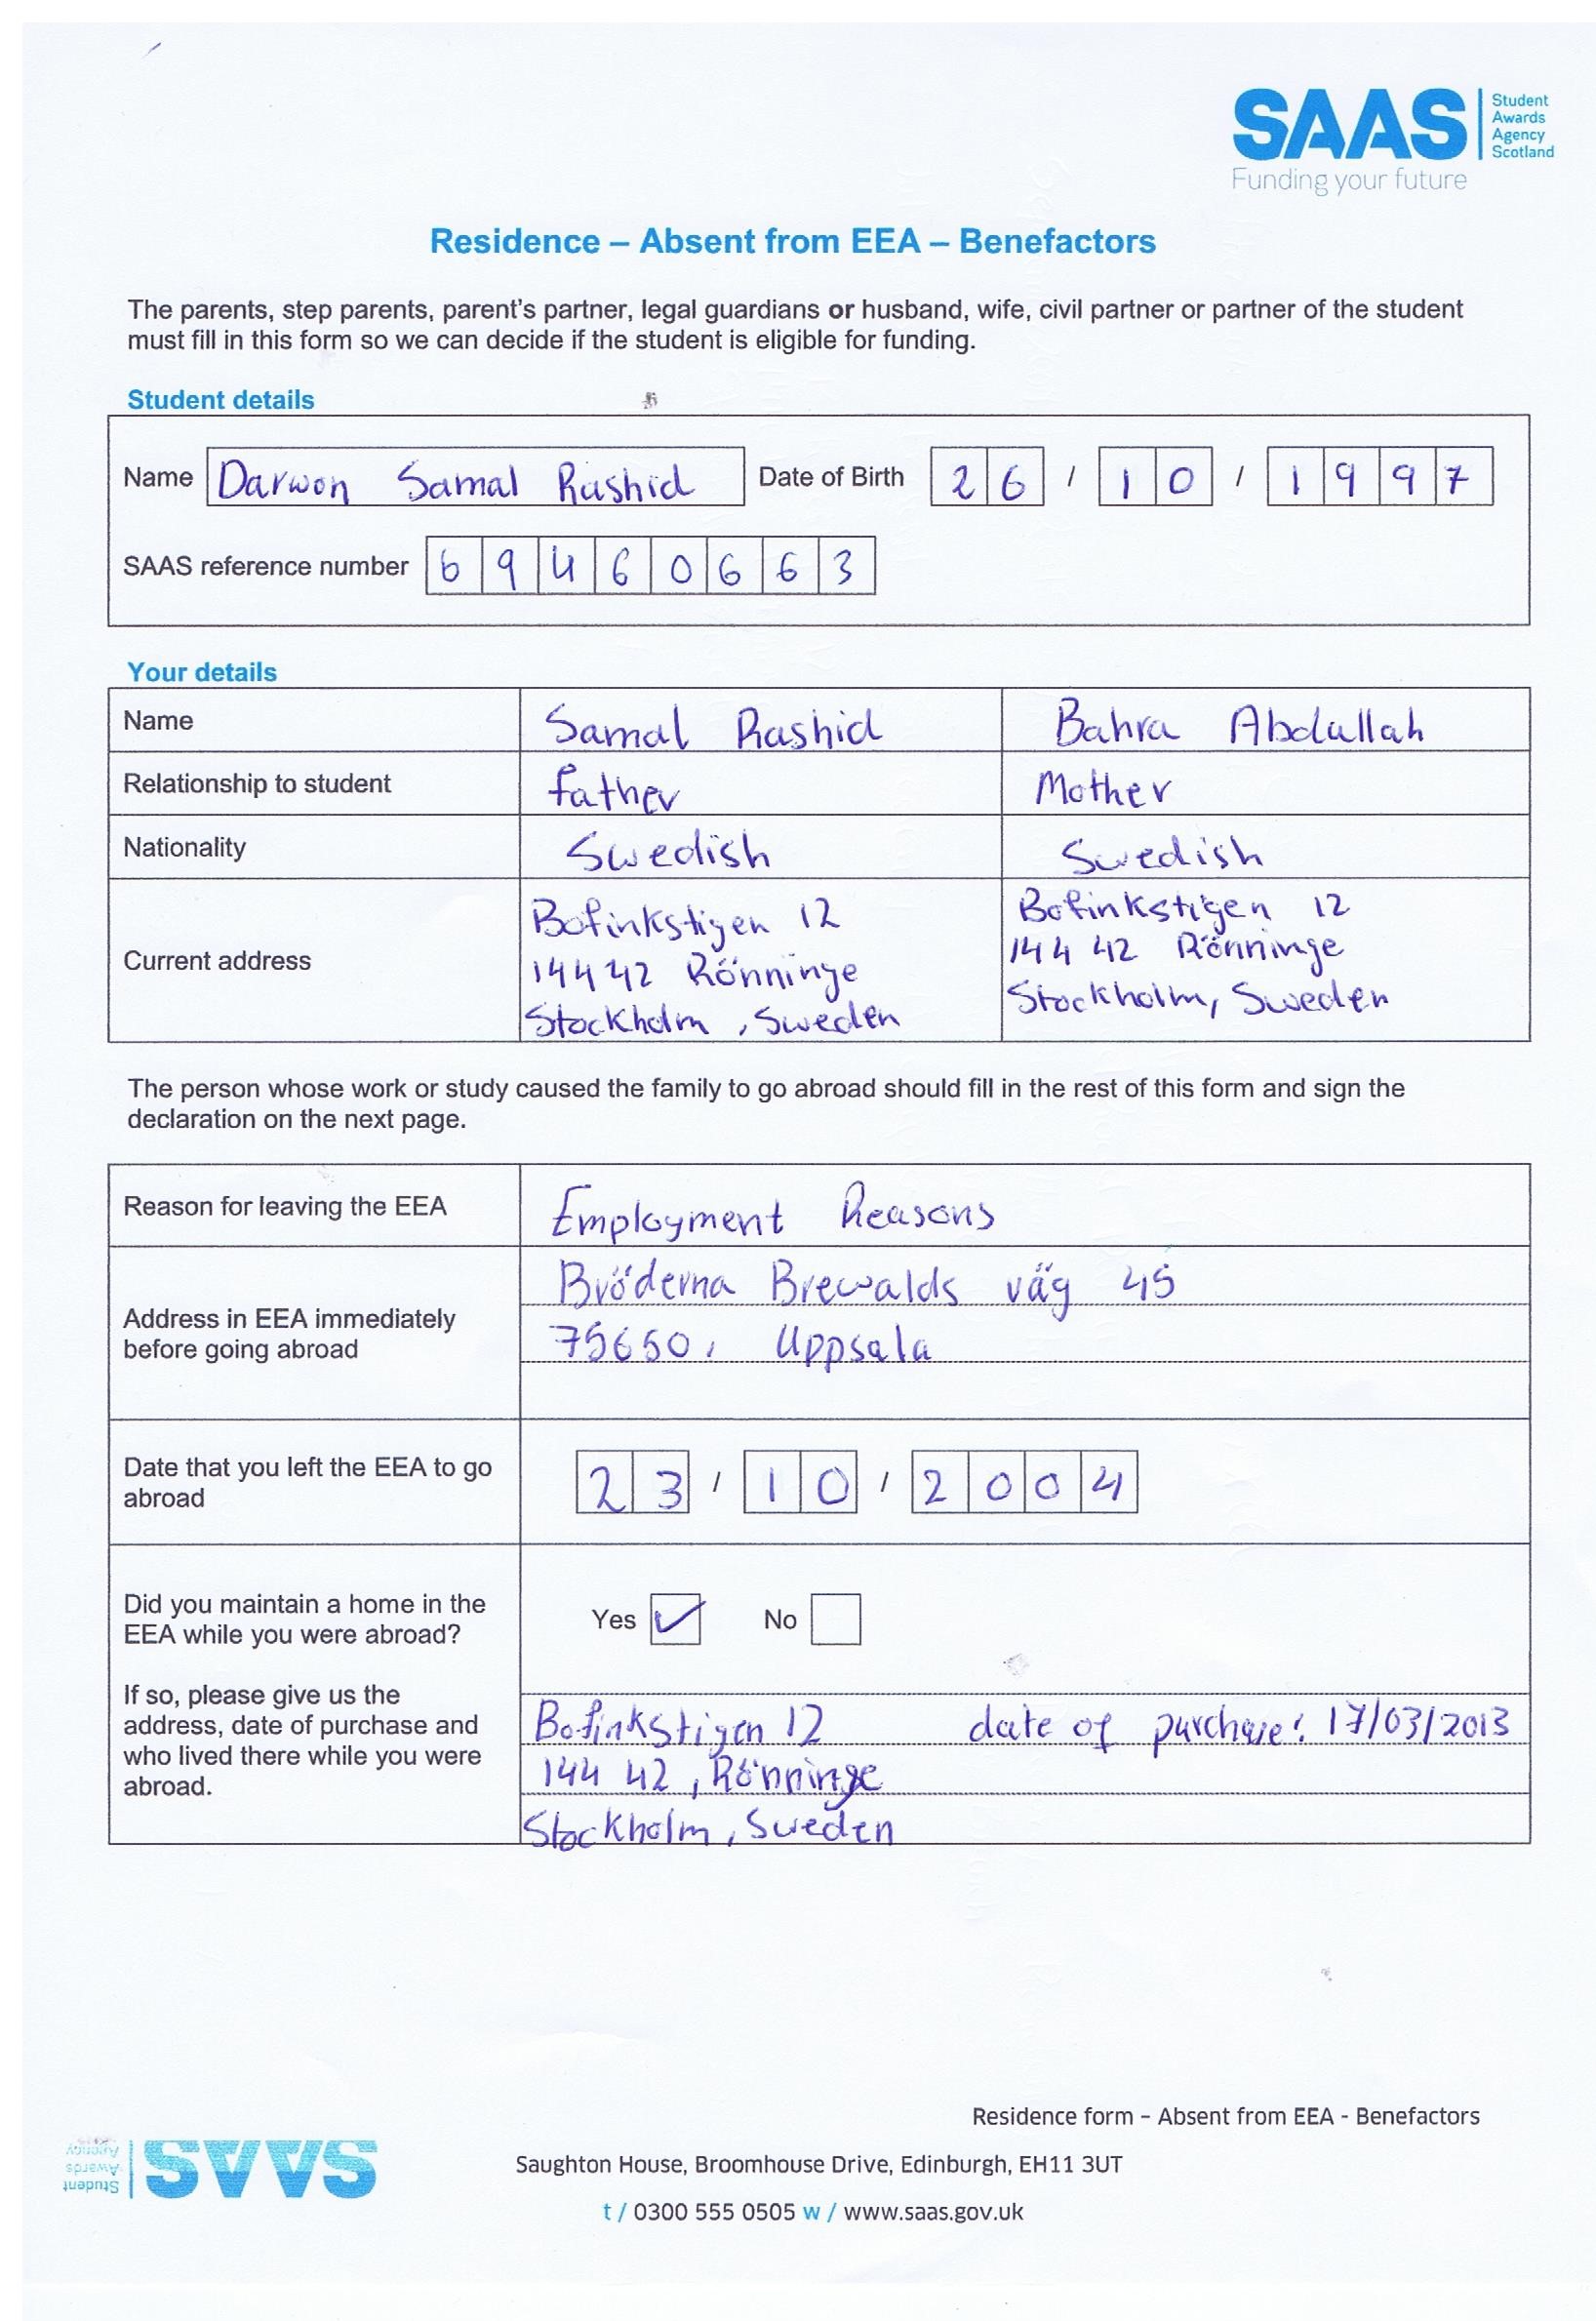 SAAS
Student
Awards
Agency
Scotland
Funding your future
Residence – Absent from EEA – Benefactors
The parents, step parents, parent's partner, legal guardians or husband, wife, civil partner or partner of the student
must fill in this form so we can decide if the student is eligible for funding.
Student details
Name Darwon Samal Rashid Date of Birth 26 / 10 / 1997
SAAS reference number 69460663
Your details
Name Samal Rashid Bahra Abdullah
Relationship to student father Mother
Nationality Swedish Swedish
Current address
Bofinkstigen 12
14442 Rönninge
Stockholm, Sweden
Bofinkstigen 12
144 42 Rönninge
Stockholm, Sweden
The person whose work or study caused the family to go abroad should fill in the rest of this form and sign the
declaration on the next page.
Reason for leaving the EEA Employment Reasons
Address in EEA immediately
before going abroad
Bröderna Brewalds väg 45
75650, Uppsala
Date that you left the EEA to go
abroad
23 / 10 / 2004
Did you maintain a home in the
EEA while you were abroad?
Yes ✓ No
If so, please give us the
address, date of purchase and
who lived there while you were
abroad.
Bofinkstigen 12 date of purchase: 17/03/2013
144 42, Rönninge
Stockholm, Sweden
Residence form – Absent from EEA - Benefactors
SAAS
Student
Awards
Agency
Saughton House, Broomhouse Drive, Edinburgh, EH11 3UT
t / 0300 555 0505 w / www.saas.gov.uk